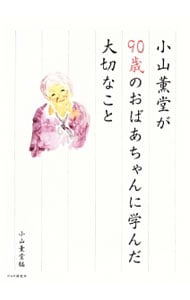 小山薫堂が
90歳のおばあちゃんに学んだ
大切なこと
小山薫堂 編
PHP研究所